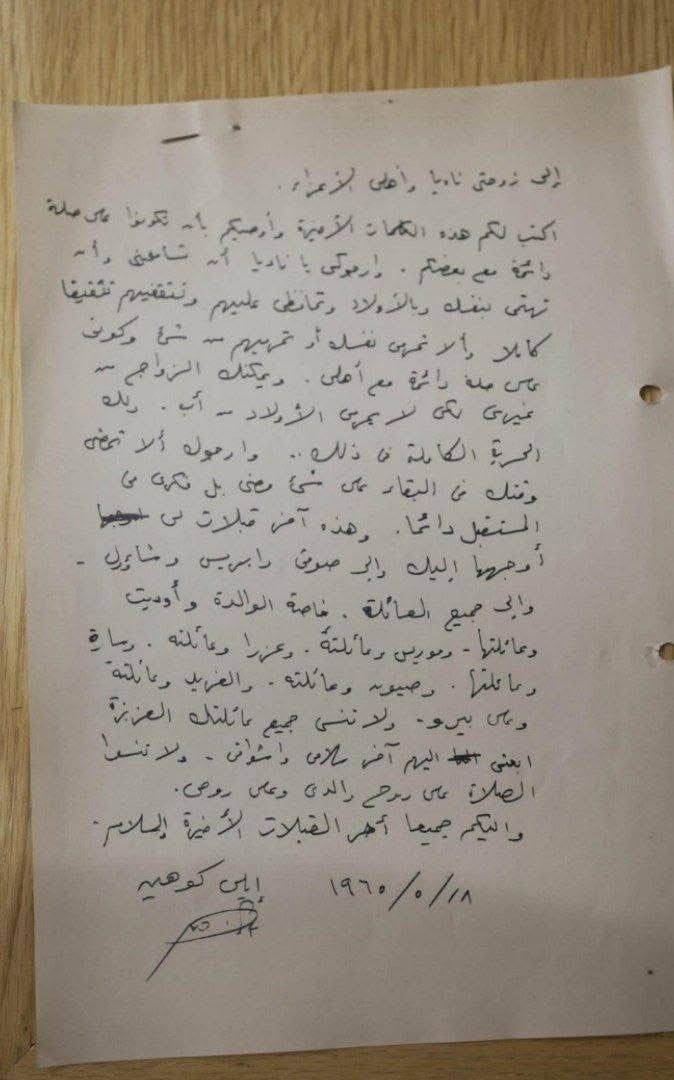 إلى زوجتي ناديا وأهلي الأعزاء .
اكتب لكم هذه الكلمات الأخيرة وأوصيكم بأن تكونوا على صلة
دائمة مع بعضكم . وارجوكي يا ناديا أن تسامحيني وأن
تهتمي بنفسك وبالأولاد وتحافظي عليهم وتثقفيهم تثقيفا
كاملا وألا تحرمي نفسك أو تحرميهم من شئ وكوني
على صلة دائمة مع أهلي . ويمكنك الزواج من
غيري لكي لا يحرم الأولاد من أب . ولك
الحرية الكاملة في ذلك .. وارجوك ألا تمضي
وقتك في البقاء على شئ مضى بل فكري في
المستقبل دائما . وهذه آخر قبلات لي
أوجهها إليك وإلى صوفي وايريس وشاؤول -
وإلى جميع العائلة . خاصة الوالدة وأوديت
وعائلتها - وموريس وعائلته . وعزرا وعائلته . وسارة
وعائلتها . وصيون وعائلته - والفريد وعائلته
وعلى بيرو - ولا تنسي جميع عائلتك العزيزة
ابعثي اليهم آخر سلامي واشواقي - ولا تنسوا
الصلاة على روح والدي وعلى روحي .
واليكم جميعا أحر القبلات الأخيرة والسلام -
١٩٦٥/٥/١٨ إيلي كوهين